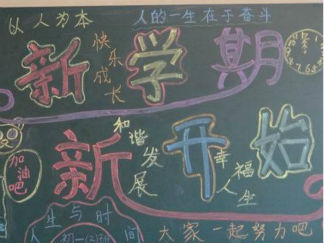 以人为本
人的一生在于奋斗
新学期
快乐成长
新开始
和谐发展
幸福人生
加油吧
人生与时间
大家一起努力吧